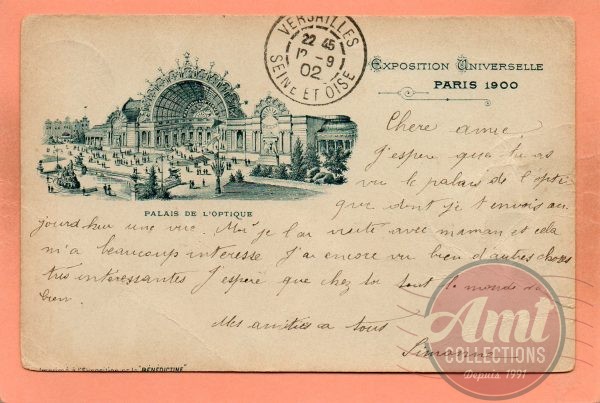 VERSAILLES
22 45
12 - 9
02
SEINE ET OISE
EXPOSITION UNIVERSELLE
PARIS 1900
PALAIS DE L'OPTIQUE
Chere amie
J'espere que tu as
vu le palais de l'opti
que dont je t'envois au
jourd'hui une vue. Moi je l'ai visite avec maman et cela
m'a beaucoup interesse. J'ai encore vu bien d'autres choses
très interessantes. J'espère que chez toi tout le monde va
bien
Mes amities a tous
Simonne
Imprimé à l'Exposition de la "BÉNÉDICTINE"
Amt
COLLECTIONS
Depuis 1991